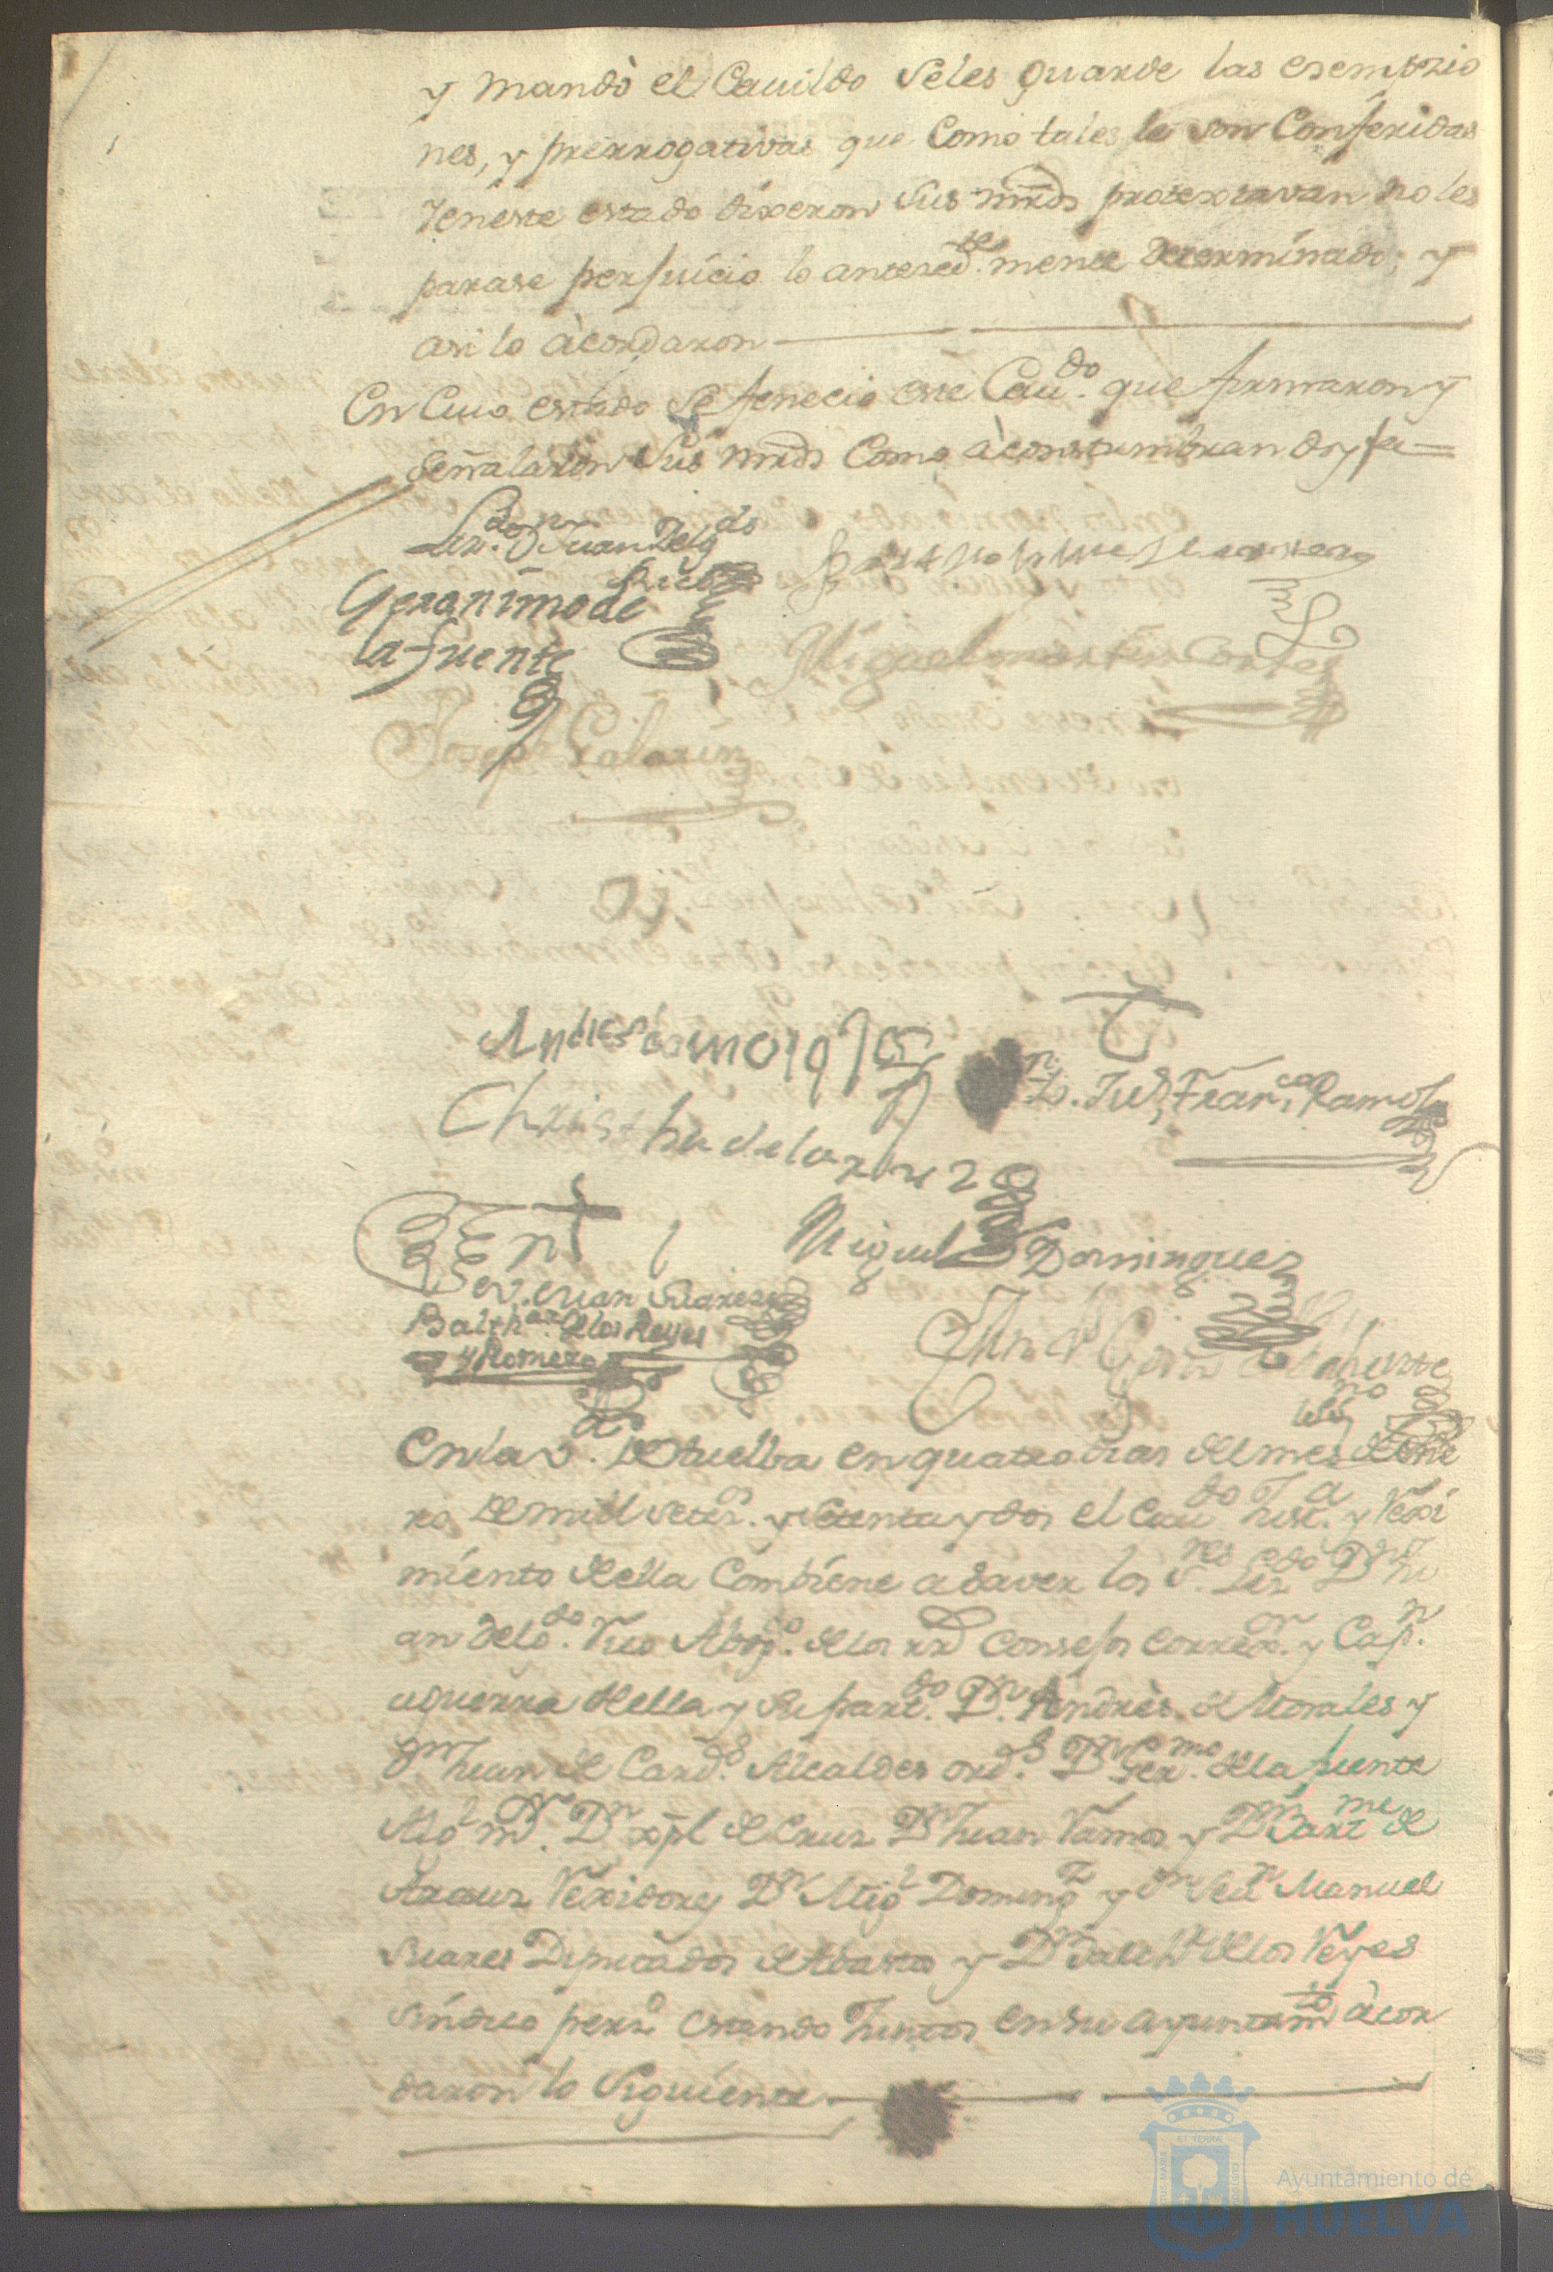 y mandò el Cauildo Seles guarde las esempzio
nes, y prerrogativas que Como tales le son Conferidas
Yeneste estado dixeron Sus mrds protextavan no les
parase perjuicio lo anteced.te mente determinado; y
asi lo àcordaron
En Cuio estado Se fenecio este Cau.do que firmaron y
señalaron Sus mrds Como àcostumbran doy fe=
Lizdo. Dn Juan Delgdo
Rico
Geronimo de
la fuente
Miguel martin Cortes
Joseph Galavin
Andres
D.n Jun Franco Ramos
Christhu de la cruz
Miguel Dominguez
Sev. Man Suares
Balthar. de los Reyes
y Romero
essno
En la v. de Huelba en quatro dias del mes de Ene
ro de mill setezs. y setenta y dos el Caudo Justa. y Rexi
miento della Combiene a saver los Sres. Lizdo Dn Ju
an Delgdo. Rico Abogo. de los rrs Consejos Correxor. y Capn.
aguerra della y su partdo. Dn. Andrès de Morales y
Dn Juan de Cards. Alcaldes ords. Dn Germo. de la fuente
Algl mr. Dn xpl de Cruz Dn Juan Ramos y Dn Bartme de
Araus Rexidores Dn Migl Domingz y Dn Seun Manuel
Suares Diputados de Abasto y Dn Balthr de los Reyes
Sindico perso estando Juntos en su ayuntamto àcor
daron lo Siguiente
Ayuntamiento de
HUELVA